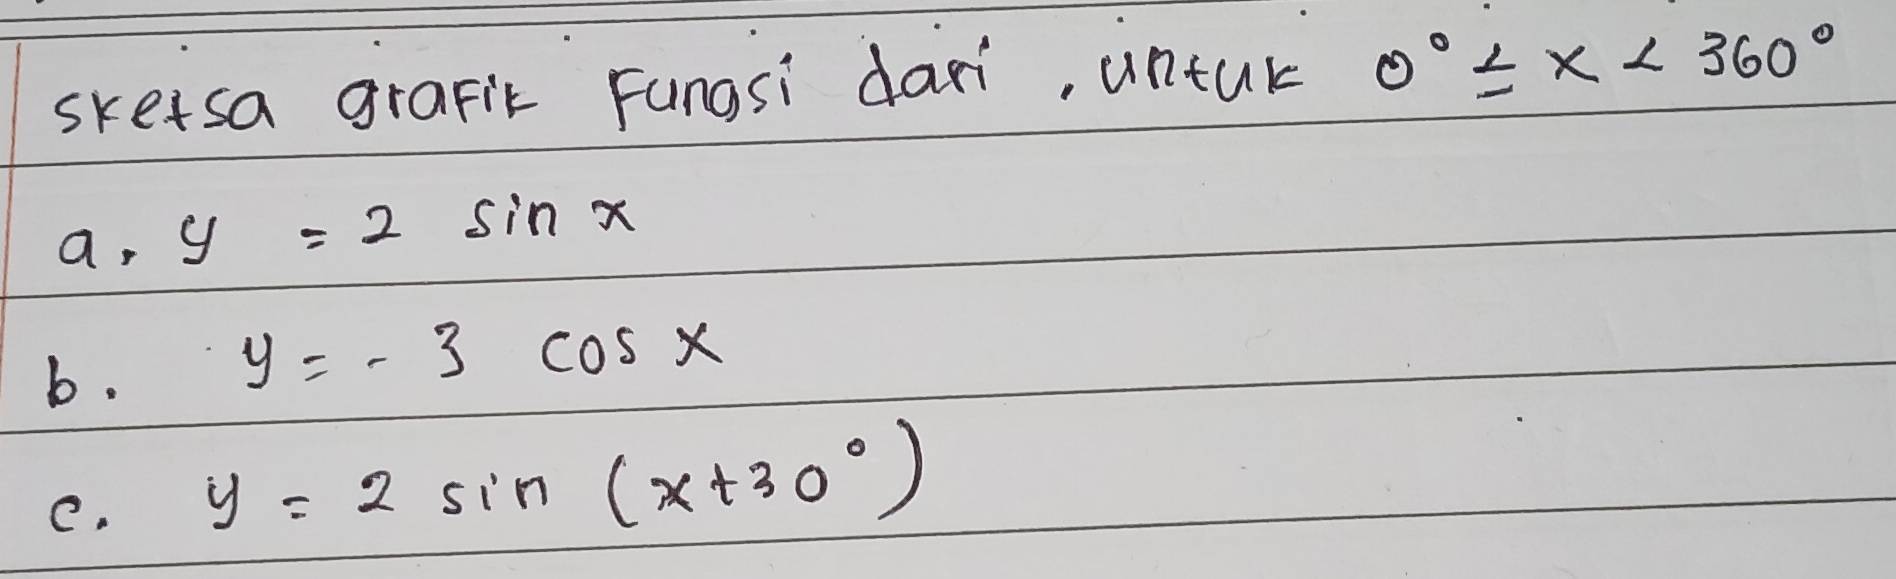 sketsa grafik Fungsi dari , untuk 0° ≤ x < 360°
a. y = 2 sin x
b. y = - 3 cos x
c. y = 2 sin (x+30°)